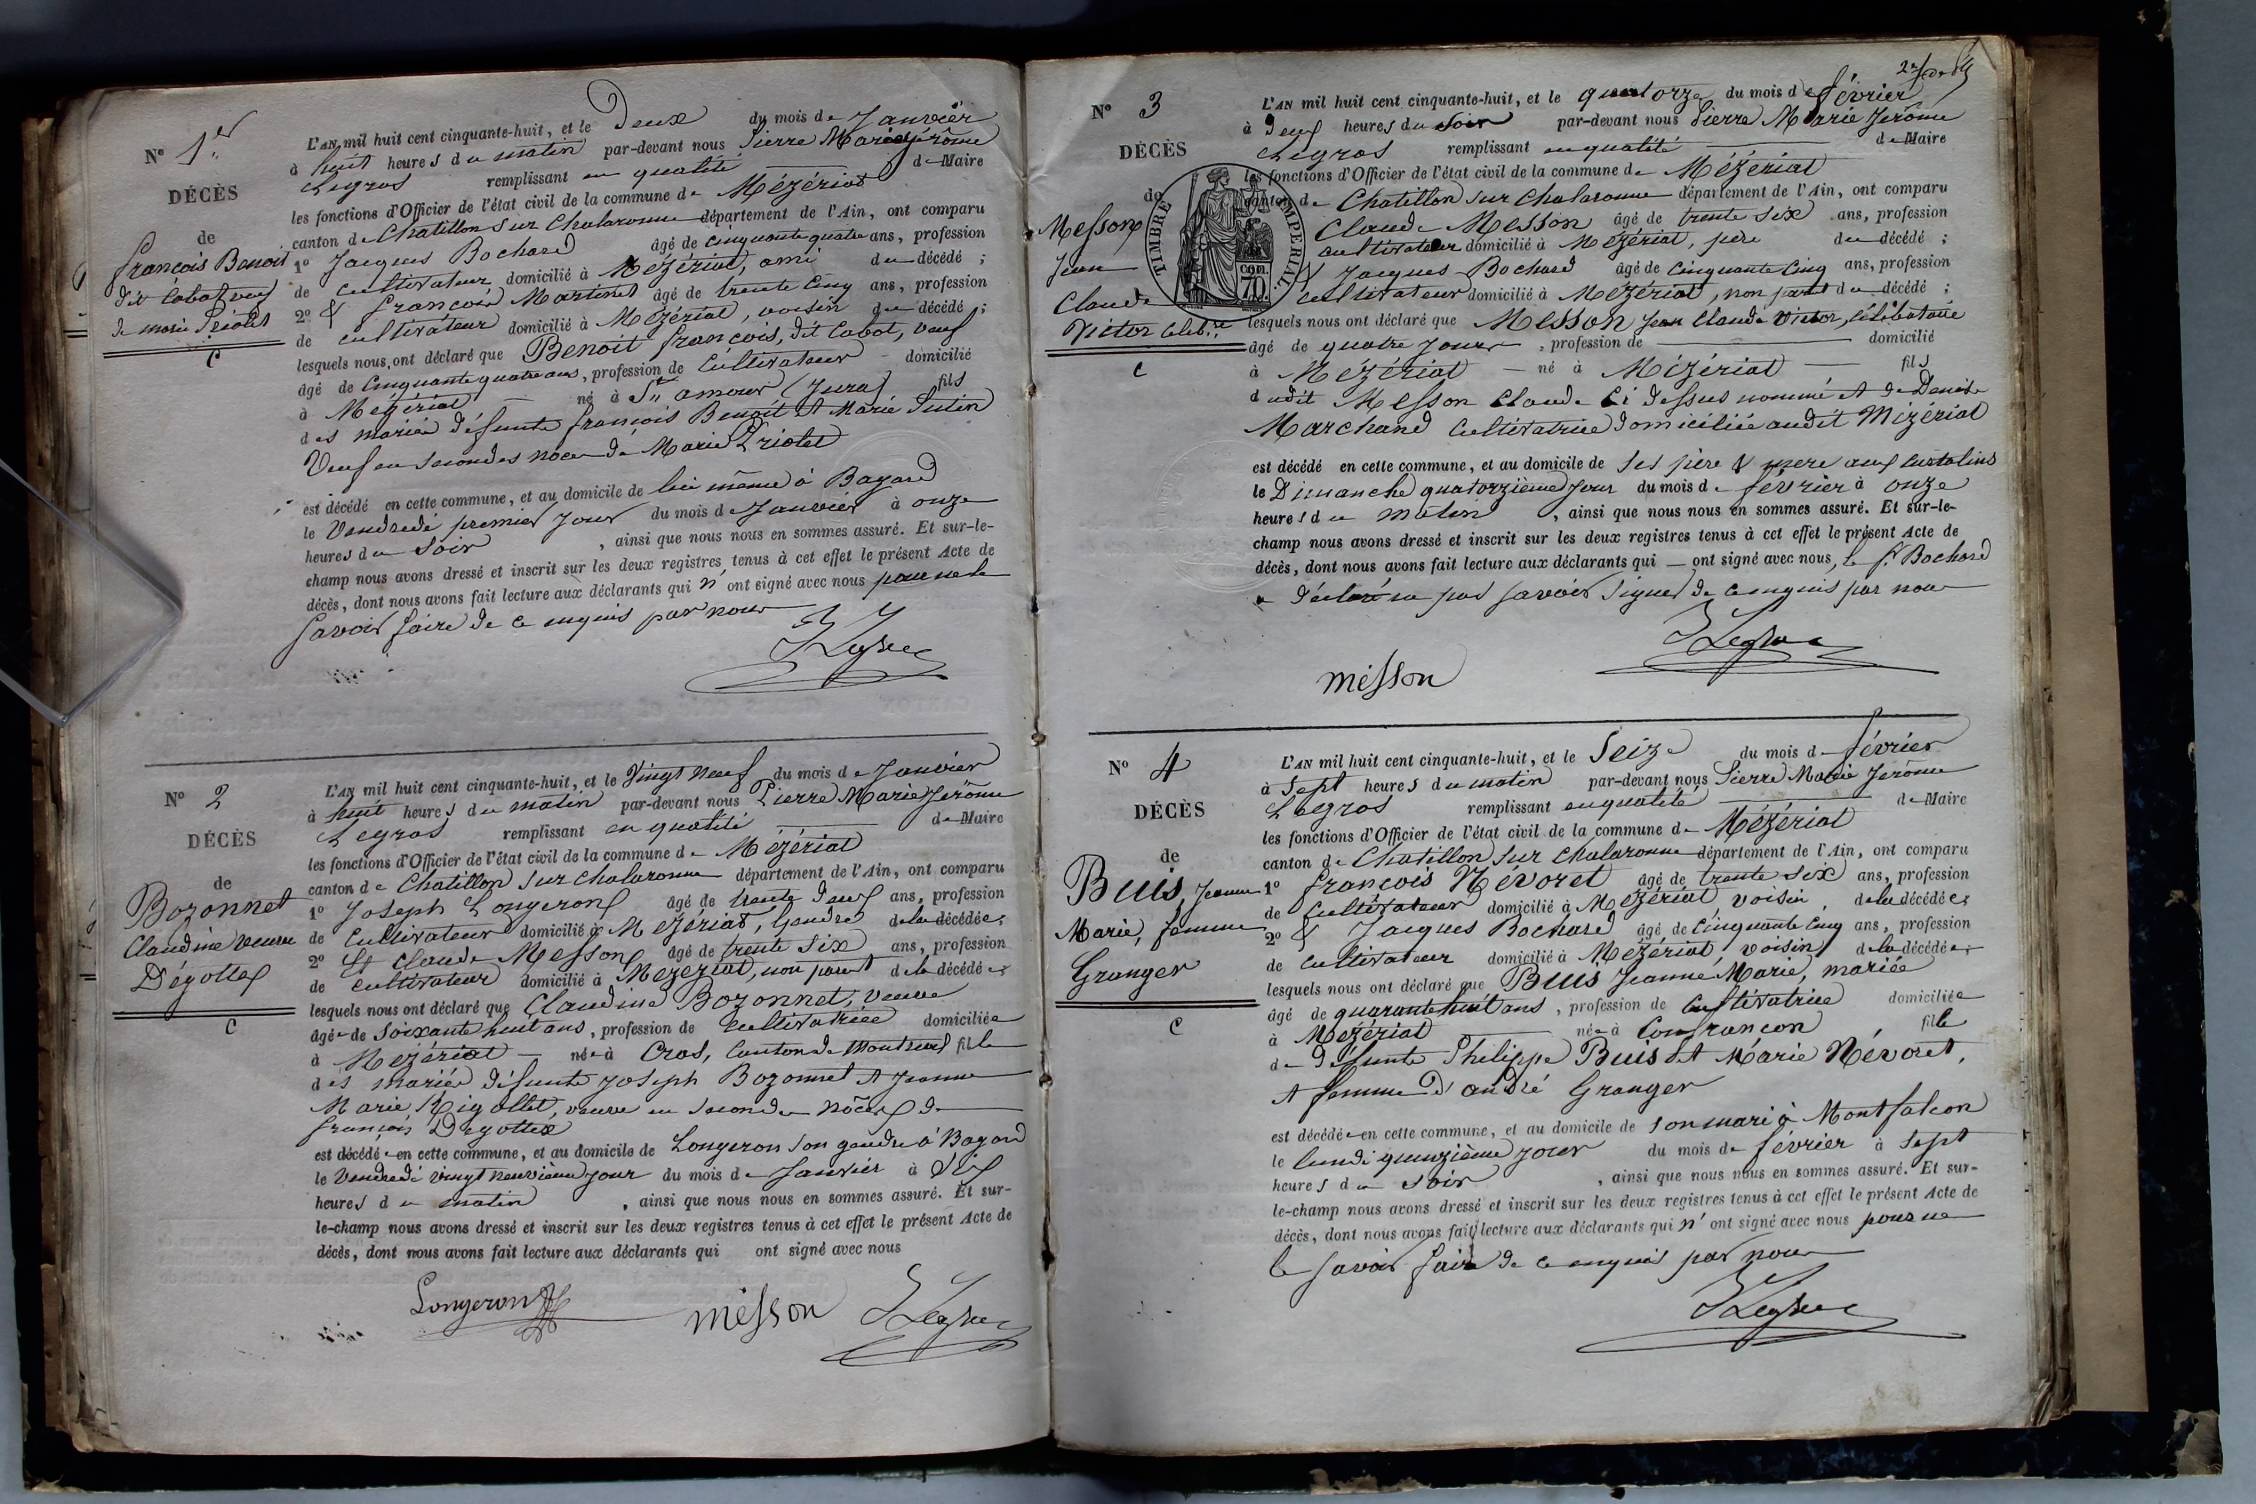 N° 1.er
DÉCÈS
de
françois Benoit
dit Cabot veuf
de marie Priolet
C
L'AN mil huit cent cinquante-huit, et le Deux du mois de Janvier
à huit heures du matin par-devant nous Pierre Marie Jérôme
Legros remplissant en qualité de Maire
les fonctions d'Officier de l'état civil de la commune de Mézériat
canton de Chatillon sur Chalaronne département de l'Ain, ont comparu
1° Jacques Bochard âgé de cinquante quatre ans, profession
de cultivateur domicilié à Mézériat, ami du décédé ;
2° & françois Martinet âgé de trente cinq ans, profession
de cultivateur domicilié à Mézériat, voisin du décédé ;
lesquels nous ont déclaré que Benoit françois, dit Cabot, veuf
âgé de cinquante quatre ans, profession de Cultivateur domicilié
à Mézériat né à St amour (Jura) fils
des mariés défunts françois Benoit et Marie Putin
Veuf en secondes noces de Marie Priolet
est décédé en cette commune, et au domicile de lui même à Bayard
le Vendredi premier jour du mois de Janvier à onze
heures du soir , ainsi que nous nous en sommes assuré. Et sur-le-
champ nous avons dressé et inscrit sur les deux registres tenus à cet effet le présent Acte de
décès, dont nous avons fait lecture aux déclarants qui n'ont signé avec nous pour ne le
savoir faire de ce enquis par nous
Legros
N° 2
DÉCÈS
de
Bozonnet
Claudine veuve
Dégottex
C
L'AN mil huit cent cinquante-huit, et le Vingt neuf du mois de Janvier
à huit heures du matin par-devant nous Pierre Marie Jérôme
Legros remplissant en qualité de Maire
les fonctions d'Officier de l'état civil de la commune de Mézériat
canton de Chatillon sur chalaronne département de l'Ain, ont comparu
1° Joseph Longeron âgé de trente deux ans, profession
de Cultivateur domicilié à Mézériat, Gendre de la décédée ;
2° Et Claude Messon âgé de trente six ans, profession
de cultivateur domicilié à Mézériat, non parent de la décédée ;
lesquels nous ont déclaré que Claudine Bozonnet, veuve
âgée de soixante huit ans, profession de Cultivatrice domiciliée
à Mézériat — née à Cras, Canton de Montrevel fille
des mariés défunts Joseph Bozonnet et Jeanne
Marie Rigollet, veuve en secondes nôces de
françois Dégottex
est décédée en cette commune, et au domicile de Longeron son gendre à Bayard
le Vendredi vingt neuvième jour du mois de Janvier à Six
heures du matin , ainsi que nous nous en sommes assuré. Et sur-
le-champ nous avons dressé et inscrit sur les deux registres tenus à cet effet le présent Acte de
décès, dont nous avons fait lecture aux déclarants qui ont signé avec nous
Longeron messon Legros
N° 3
DÉCÈS
de
Messon
Jean
Claude
Victor Celib.re
C
TIMBRE IMPERIAL
COM.
70.
L'AN mil huit cent cinquante-huit, et le quatorze du mois de février
à Deux heures du soir par-devant nous Pierre Marie Jérôme
Legros remplissant en qualité de Maire
les fonctions d'Officier de l'état civil de la commune de Mézériat
canton de Chatillon sur Chalaronne département de l'Ain, ont comparu
Claude Messon âgé de trente six ans, profession
cultivateur domicilié à Mézériat, père du décédé ;
& Jacques Bochard âgé de Cinquante Cinq ans, profession
Cultivateur domicilié à Mézériat, non parent du décédé ;
lesquels nous ont déclaré que Messon Jean Claude Victor, Célibataire
âgé de quatre jours , profession de domicilié
à Mézériat — né à Mézériat — fils
dudit Messon Claude Ci dessus nommé et de Denise
Marchand Cultivatrice domiciliée audit Mézériat
est décédé en cette commune, et au domicile de ses père & mere aux Curtalins
le Dimanche quatorzième jour du mois de février à onze
heures du matin , ainsi que nous nous en sommes assuré. Et sur-le-
champ nous avons dressé et inscrit sur les deux registres tenus à cet effet le présent Acte de
décès, dont nous avons fait lecture aux déclarants qui — ont signé avec nous, le s.r Bochard
a déclaré ne pas savoir signer de ce enquis par nous
messon Legros
N° 4
DÉCÈS
de
Buis, Jeanne
Marie, femme
Granger
C
L'AN mil huit cent cinquante-huit, et le Seize du mois de février
à Sept heures du matin par-devant nous Pierre Marie Jérôme
Legros remplissant en qualité de Maire
les fonctions d'Officier de l'état civil de la commune de Mézériat
canton de Chatillon sur Chalaronne département de l'Ain, ont comparu
1° françois Névoret âgé de trente six ans, profession
de Cultivateur domicilié à Mézériat voisin, de la décédée ;
2° & Jacques Bochard âgé de cinquante cinq ans, profession
de cultivateur domicilié à Mézériat, voisin de la décédée ;
lesquels nous ont déclaré que Buis Jeanne Marie, mariée
âgée de quarante huit ans, profession de Cultivatrice domiciliée
à Mézériat née à Confrançon fille
de défunts Philippe Buis et Marie Névoret,
et femme d'andré Granger
est décédée en cette commune, et au domicile de son mari à Montfalcon
le lundi quinzième jour du mois de février à sept
heures du soir , ainsi que nous nous en sommes assuré. Et sur-
le-champ nous avons dressé et inscrit sur les deux registres tenus à cet effet le présent Acte de
décès, dont nous avons fait lecture aux déclarants qui n'ont signé avec nous pour ne
le savoir faire de ce enquis par nous
Legros